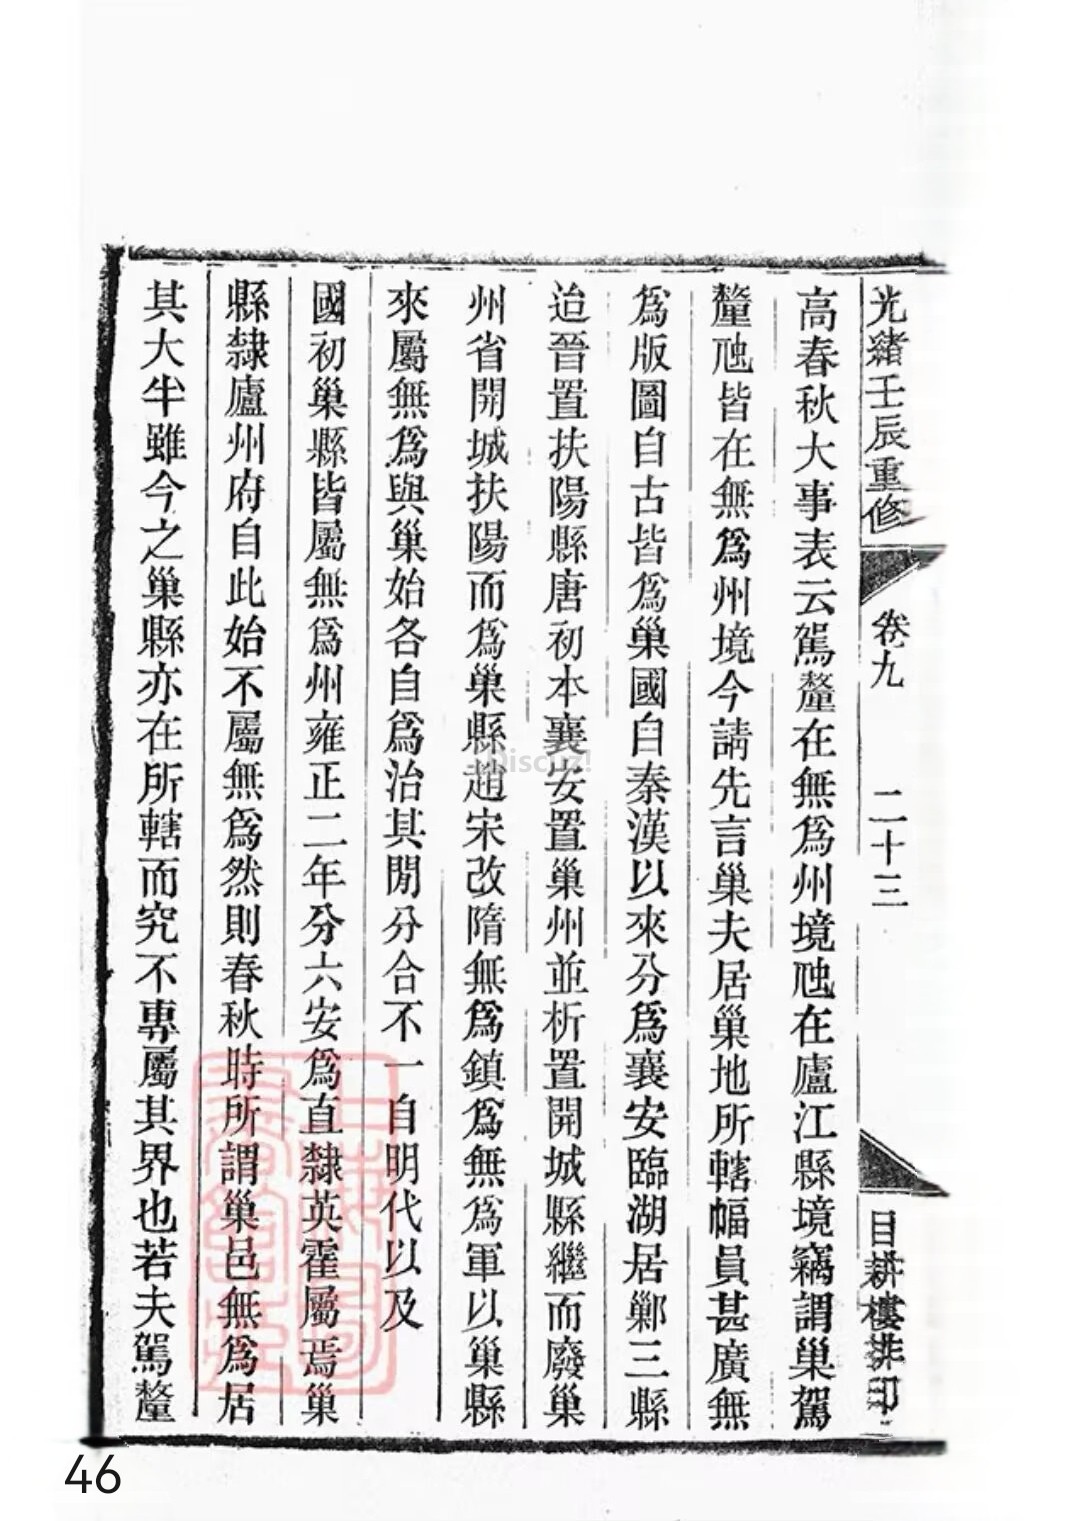 光緒壬辰重修
卷九
二十三
目耕樓排印
高春秋大事表云駕釐在無爲州境虺在廬江縣境竊謂巢駕
釐虺皆在無爲州境今請先言巢夫居巢地所轄幅員甚廣無
爲版圖自古皆爲巢國自秦漢以來分爲襄安臨湖居鄛三縣
迨晉置扶陽縣唐初本襄安置巢州並析置開城縣繼而廢巢
州省開城扶陽而爲巢縣趙宋改隋無爲鎮爲無爲軍以巢縣
來屬無爲與巢始各自爲治其閒分合不一自明代以及
國初巢縣皆屬無爲州雍正二年分六安爲直隸英霍屬焉巢
縣隸廬州府自此始不屬無爲然則春秋時所謂巢邑無爲居
其大半雖今之巢縣亦在所轄而究不專屬其界也若夫駕釐
上海圖書館藏
Discuz!
46